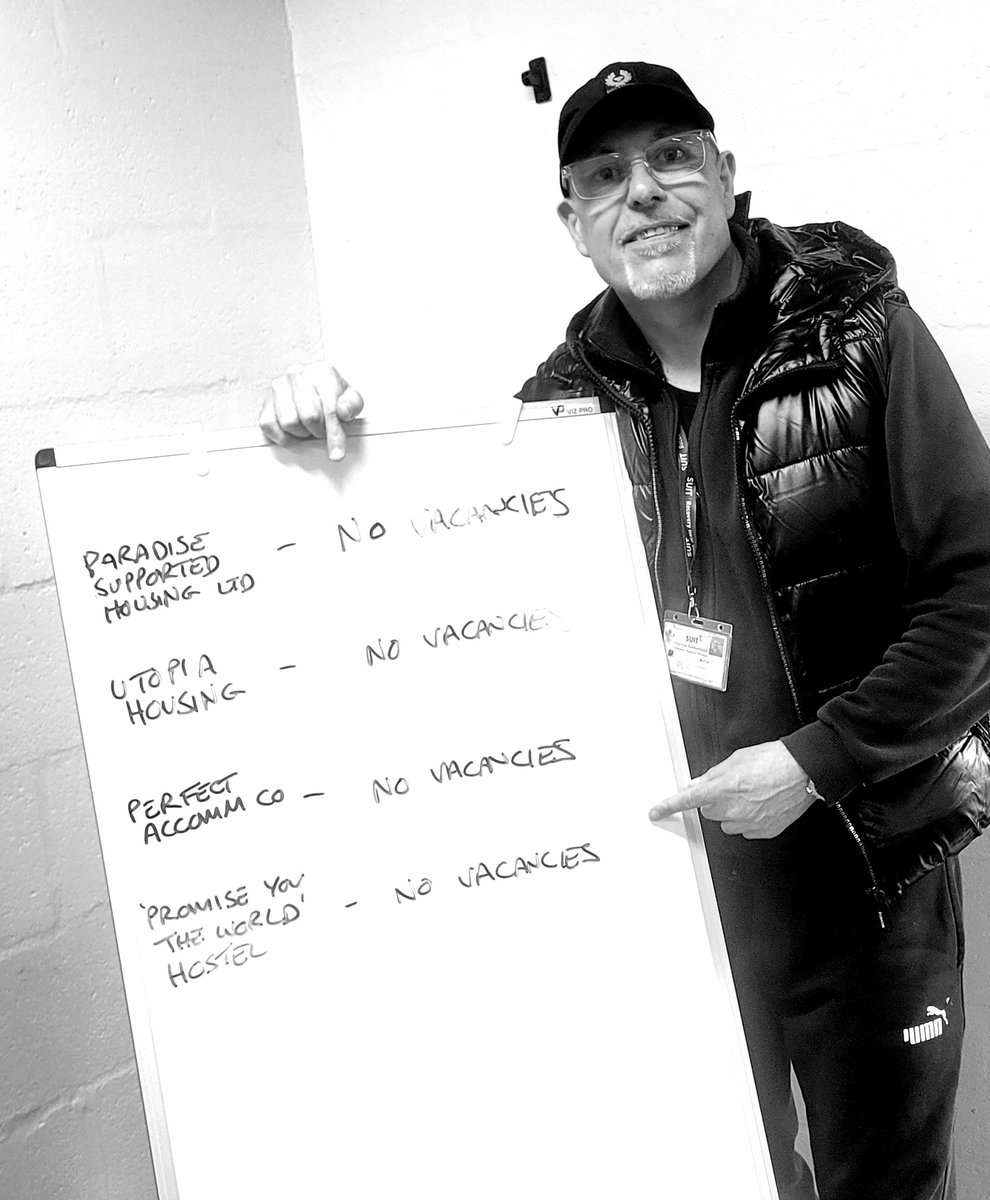 VP VIZ-PRO
PARADISE
SUPPORTED
HOUSING LTD
- NO VACANCIES
UTOPIA
HOUSING
- NO VACANCIES
PERFECT
ACCOMM CO
- NO VACANCIES
'PROMISE YOU
THE WORLD'
HOSTEL
- NO VACANCIES
SUIT Recovery
SUIT
PUMA